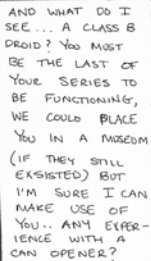 AND WHAT DO I
SEE... A CLASS B
DROID? YOU MUST
BE THE LAST OF
YOUR SERIES TO
BE FUNCTIONING,
WE COULD PLACE
YOU IN A MUSEUM
(IF THEY STILL
EXSISTED) BUT
I'M SURE I CAN
MAKE USE OF
YOU.. ANY EXPER-
IENCE WITH A
CAN OPENER?